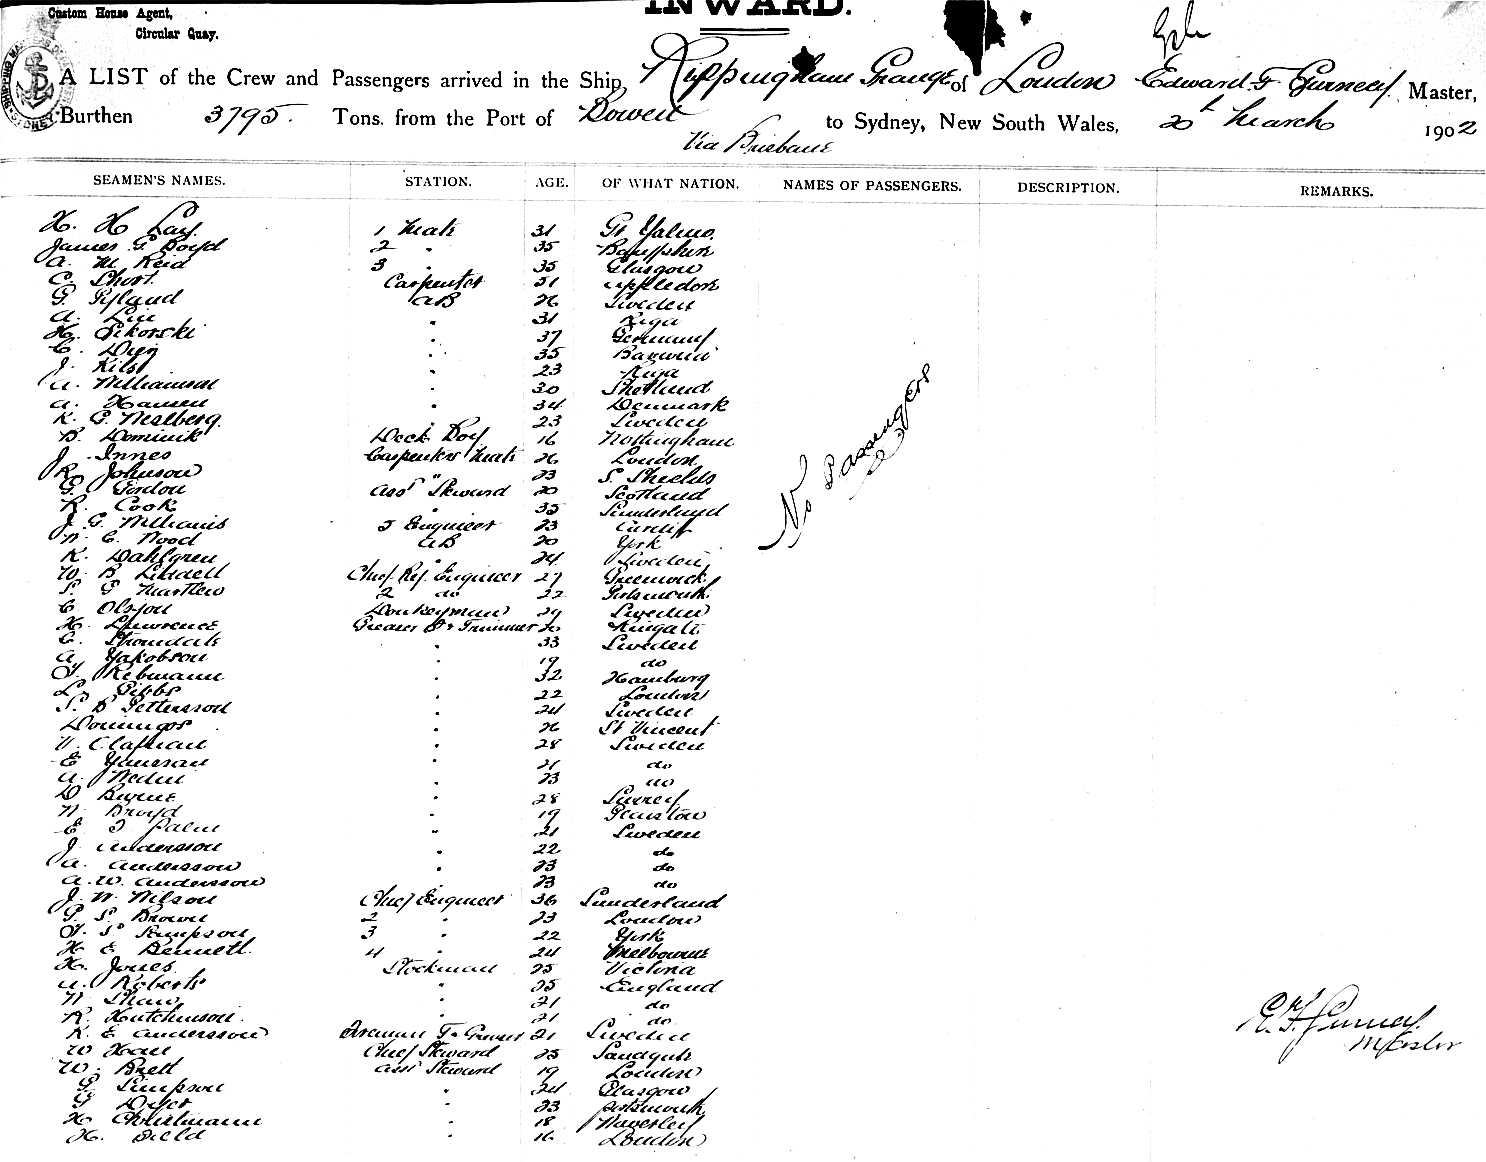 Custom House Agent,
Circular Quay.
INWARD.
A LIST of the Crew and Passengers arrived in the Ship, Rippingham Grange of London Edward F Gurney, Master,
Burthen 3795. Tons, from the Port of to Sydney, New South Wales, 20th March 1902
Via Brisbane
SEAMEN'S NAMES. STATION. AGE. OF WHAT NATION. NAMES OF PASSENGERS. DESCRIPTION. REMARKS.
H. H Lay 1 Mate 31 Gt
James G Boyd 2 " 35
A. M Reid 3 " 35 Glasgow
C. Short Carpenter 51 Appledore
G. AB 26 Sweden
A. " 31 Riga
H. Sikorski " 37 Germany
C. " 35 Bavaria
J. " 23 Riga
A. Williamson " 30 Shetland
A. Hansen " 34 Denmark
K. G. " 23 Sweden
B. Dominik Deck Boy 16 Nottingham
J. Innes Carpenters Mate 26 London
R. Johnson " 23 S. Shields
G. Gordon Asst Steward 20 Scotland
R. Cook " 35 Sunderland
J. G. Williams 5 Engineer 23 Cardiff
W. C. Wood AB 20 York
K. Dahlgren " 24 Sweden
W B Liddell Chief Ref. Engineer 27 Greenwich
S. G 2 do 22 Portsmouth
C Donkeyman 29 Sweden
H. Lawrence Greaser & Trimmer 20
C. " 33 Sweden
A. Yakobson " 19 do
Rebmann " 32 Hamburg
L. Gibbs " 22 London
S. B Pettersson " 24 Sweden
Domingos " 26 St Vincent
" 28 Sweden
E " 21 do
A " 23 do
D " 28 Surrey
W. Broyd " 19
E Palm " 21 Sweden
J Andersson " 22 do
A. Andersson " 23 do
A. W. Andersson " 23 do
J. W. Wilson Chief Engineer 36 Sunderland
G. S. Brown 2 " 23 London
Simpson 3 " 22 York
H E Bennett 4 " 24 Melbourne
H. Jones Stockman 25 Victoria
A. Roberts " 25 England
W Shaw " 21 do
R. Hutchinson " 21 do
K E Andersson Fireman 21 Sweden
W Chief Steward 25 Sandgate
W. Brett Asst Steward 19 London
G Simpson " 24 Glasgow
G Dyer " 23 Portsmouth
H " 18 Waverley
H. Field " 16 London
No Passengers
E. F. Gurney
Master